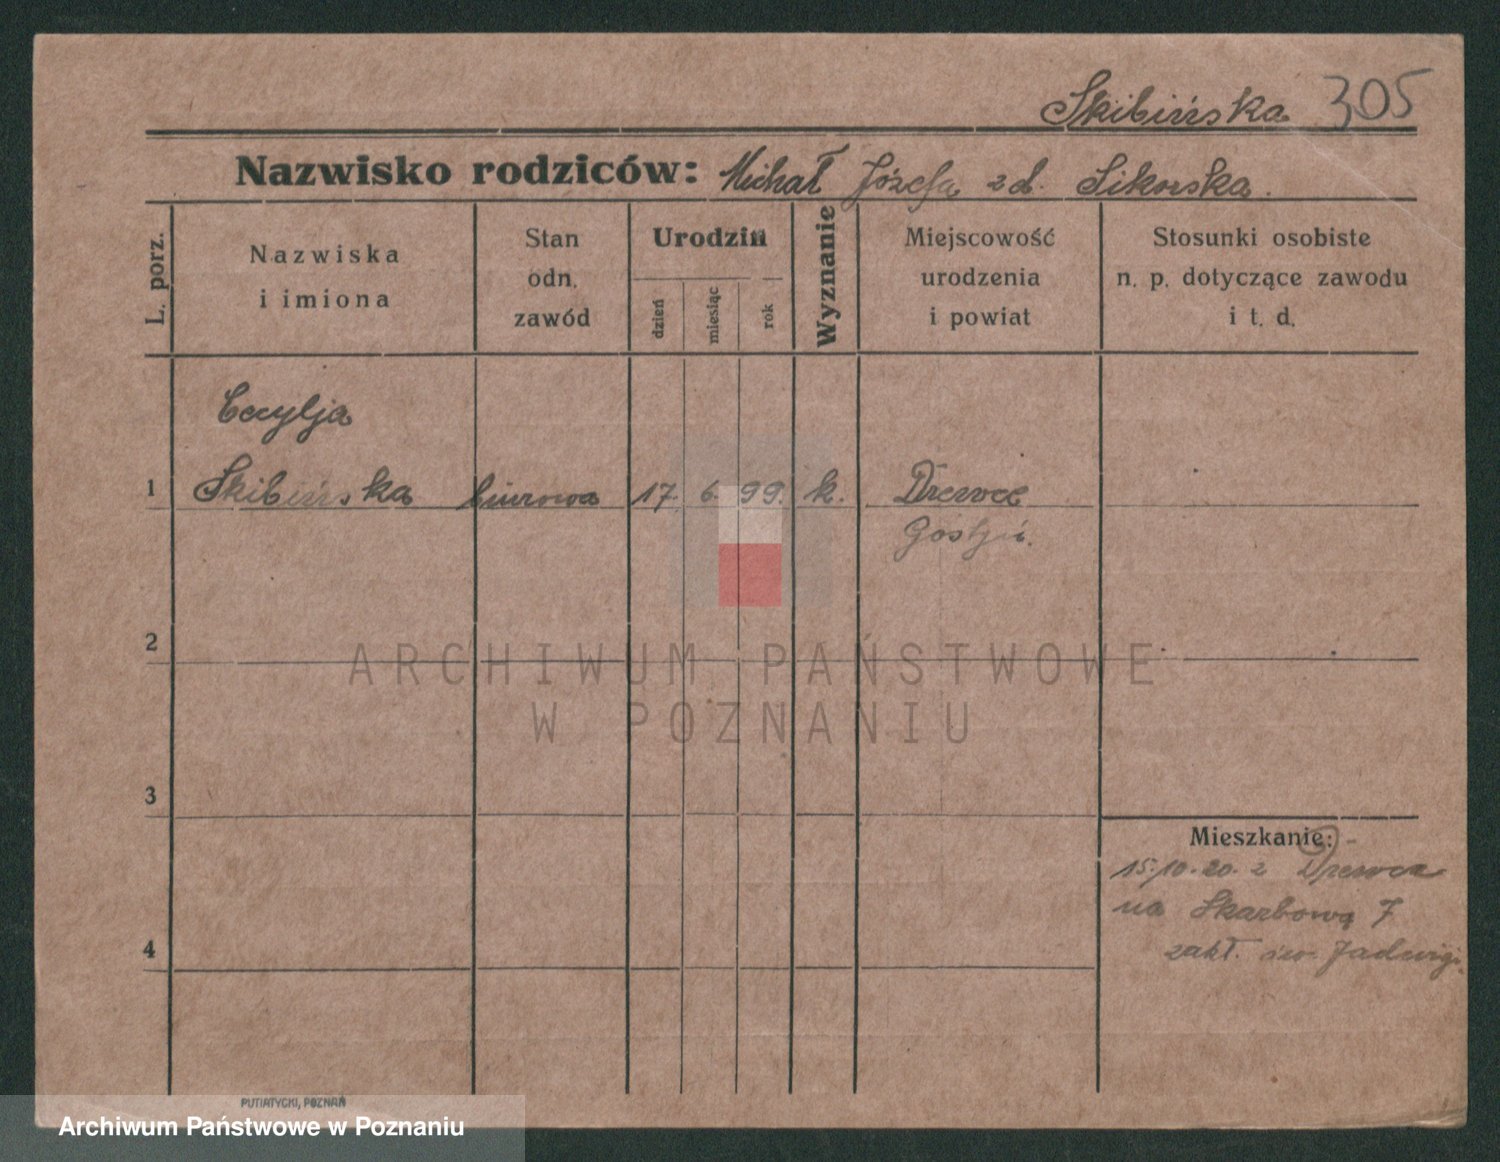 Skibińska 305
Nazwisko rodziców: Michał Józefa zd. Sikorska.
L. porz.
Nazwiska
i imiona
Stan
odn.
zawód
Urodzin
dzień
miesiąc
rok
Wyznanie
Miejscowość
urodzenia
i powiat
Stosunki osobiste
n. p. dotyczące zawodu
i t. d.
Cecylja
1 Skibińska biurowa 17. 6. 99. k. Drzewce
Gostyń.
2
3
4
Mieszkanie:
15.10.20. z Drzewca
na Skarbową 7
zakł. św. Jadwigi.
ARCHIWUM PAŃSTWOWE
W POZNANIU
PUTIATYCKI, POZNAŃ
Archiwum Państwowe w Poznaniu